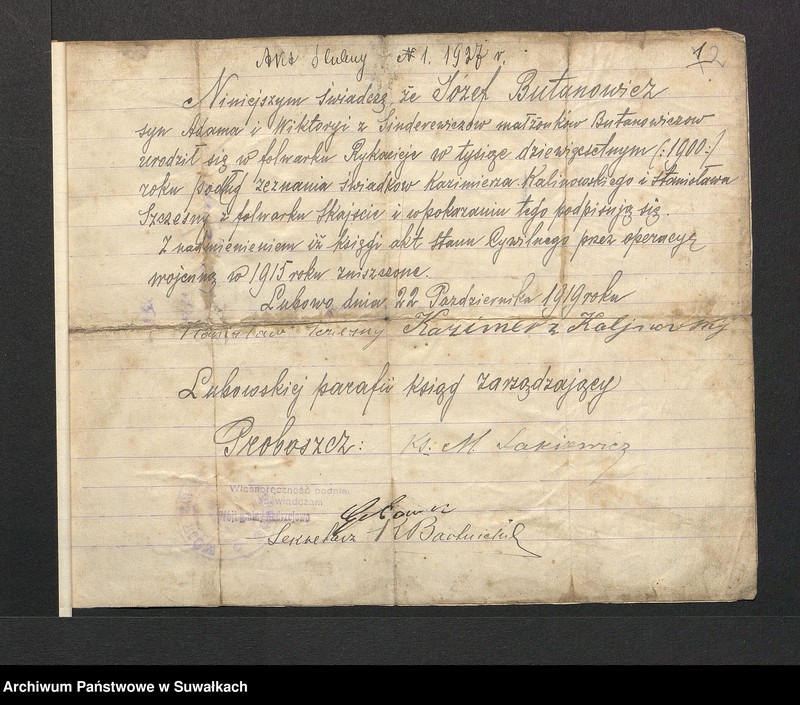 Akt ślubny № 1. 1927 r.
12
Niniejszym świadczę, że Józef Butanowicz
syn Adama i Wiktoryi z Sinderewiczów małżonków Butanowiczow
urodził się w folwarku Rykacieje w tysiąc dziewięsetnym (:1900:)
roku podług zeznania świadków Kazimierza Kalinowskiego i Stanisława
Szczęsny z folwarku Skajście i wpokazaniu tego podpisują się.
Z nadmienieniem iż księgi akt stanu Cywilnego przez operacyę
wojenną w 1915 roku zniszszone.
Lubowo dnia 22 Pazdziernika 1919 roku
Kazimerz Kaljnowskj
Lubowskiej parafii ksiąg zarządzający
Proboszcz: Ks. M.
Własnoręczność podpisu
zaświadczam
Wójt gminy
Sekretarz
Archiwum Państwowe w Suwałkach